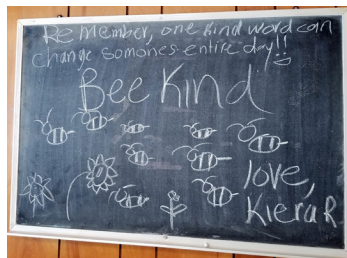 Remember, one Kind word can
change somones entire day!!
Bee Kind
love,
Kiera R